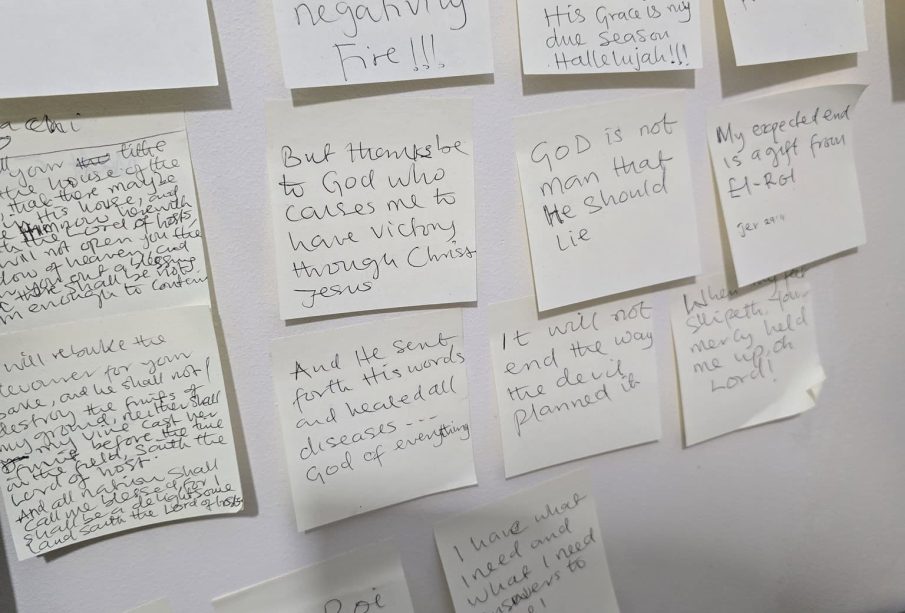 negativity
Fire!!!
His Grace is my
due season
Hallelujah!!!
all your tithe
the house of the
, that there may be
in His house, and
now herewith
the Lord of hosts,
will not open you the
dow of heaven, and
you out a blessing
shall be not
enough to contain
But thanks be
to God who
causes me to
have victory
through Christ
Jesus
GOD is not
man that
He should
lie
My expected end
is a gift from
El-Roi
Jer 29:11
will rebuke the
devourer for your
sake, and he shall not
destroy the fruits of
my ground, neither shall
my vine cast her
fruit before the time
in the field, saith the
Lord of host.
And all nation shall
Call me blessed for I
shall be a delightsome
land saith the Lord of hosts
And He sent
forth His words
and healed all
diseases ----
God of everything
It will not
end the way
the devil
planned it
When my feet
slippeth, your
mercy held
me up, oh
Lord!
Roi
I have what
I need and
what I need
answers to